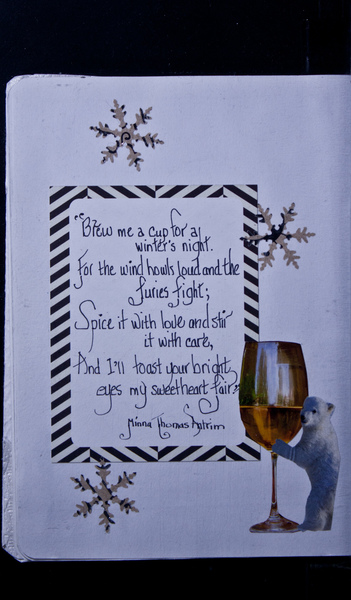 "Brew me a cup for a
winter's night.
For the wind howls loud and the
furies fight;
Spice it with love and stir
it with care,
And I'll toast your bright
eyes my sweetheart fair."
Minna Thomas Antrim